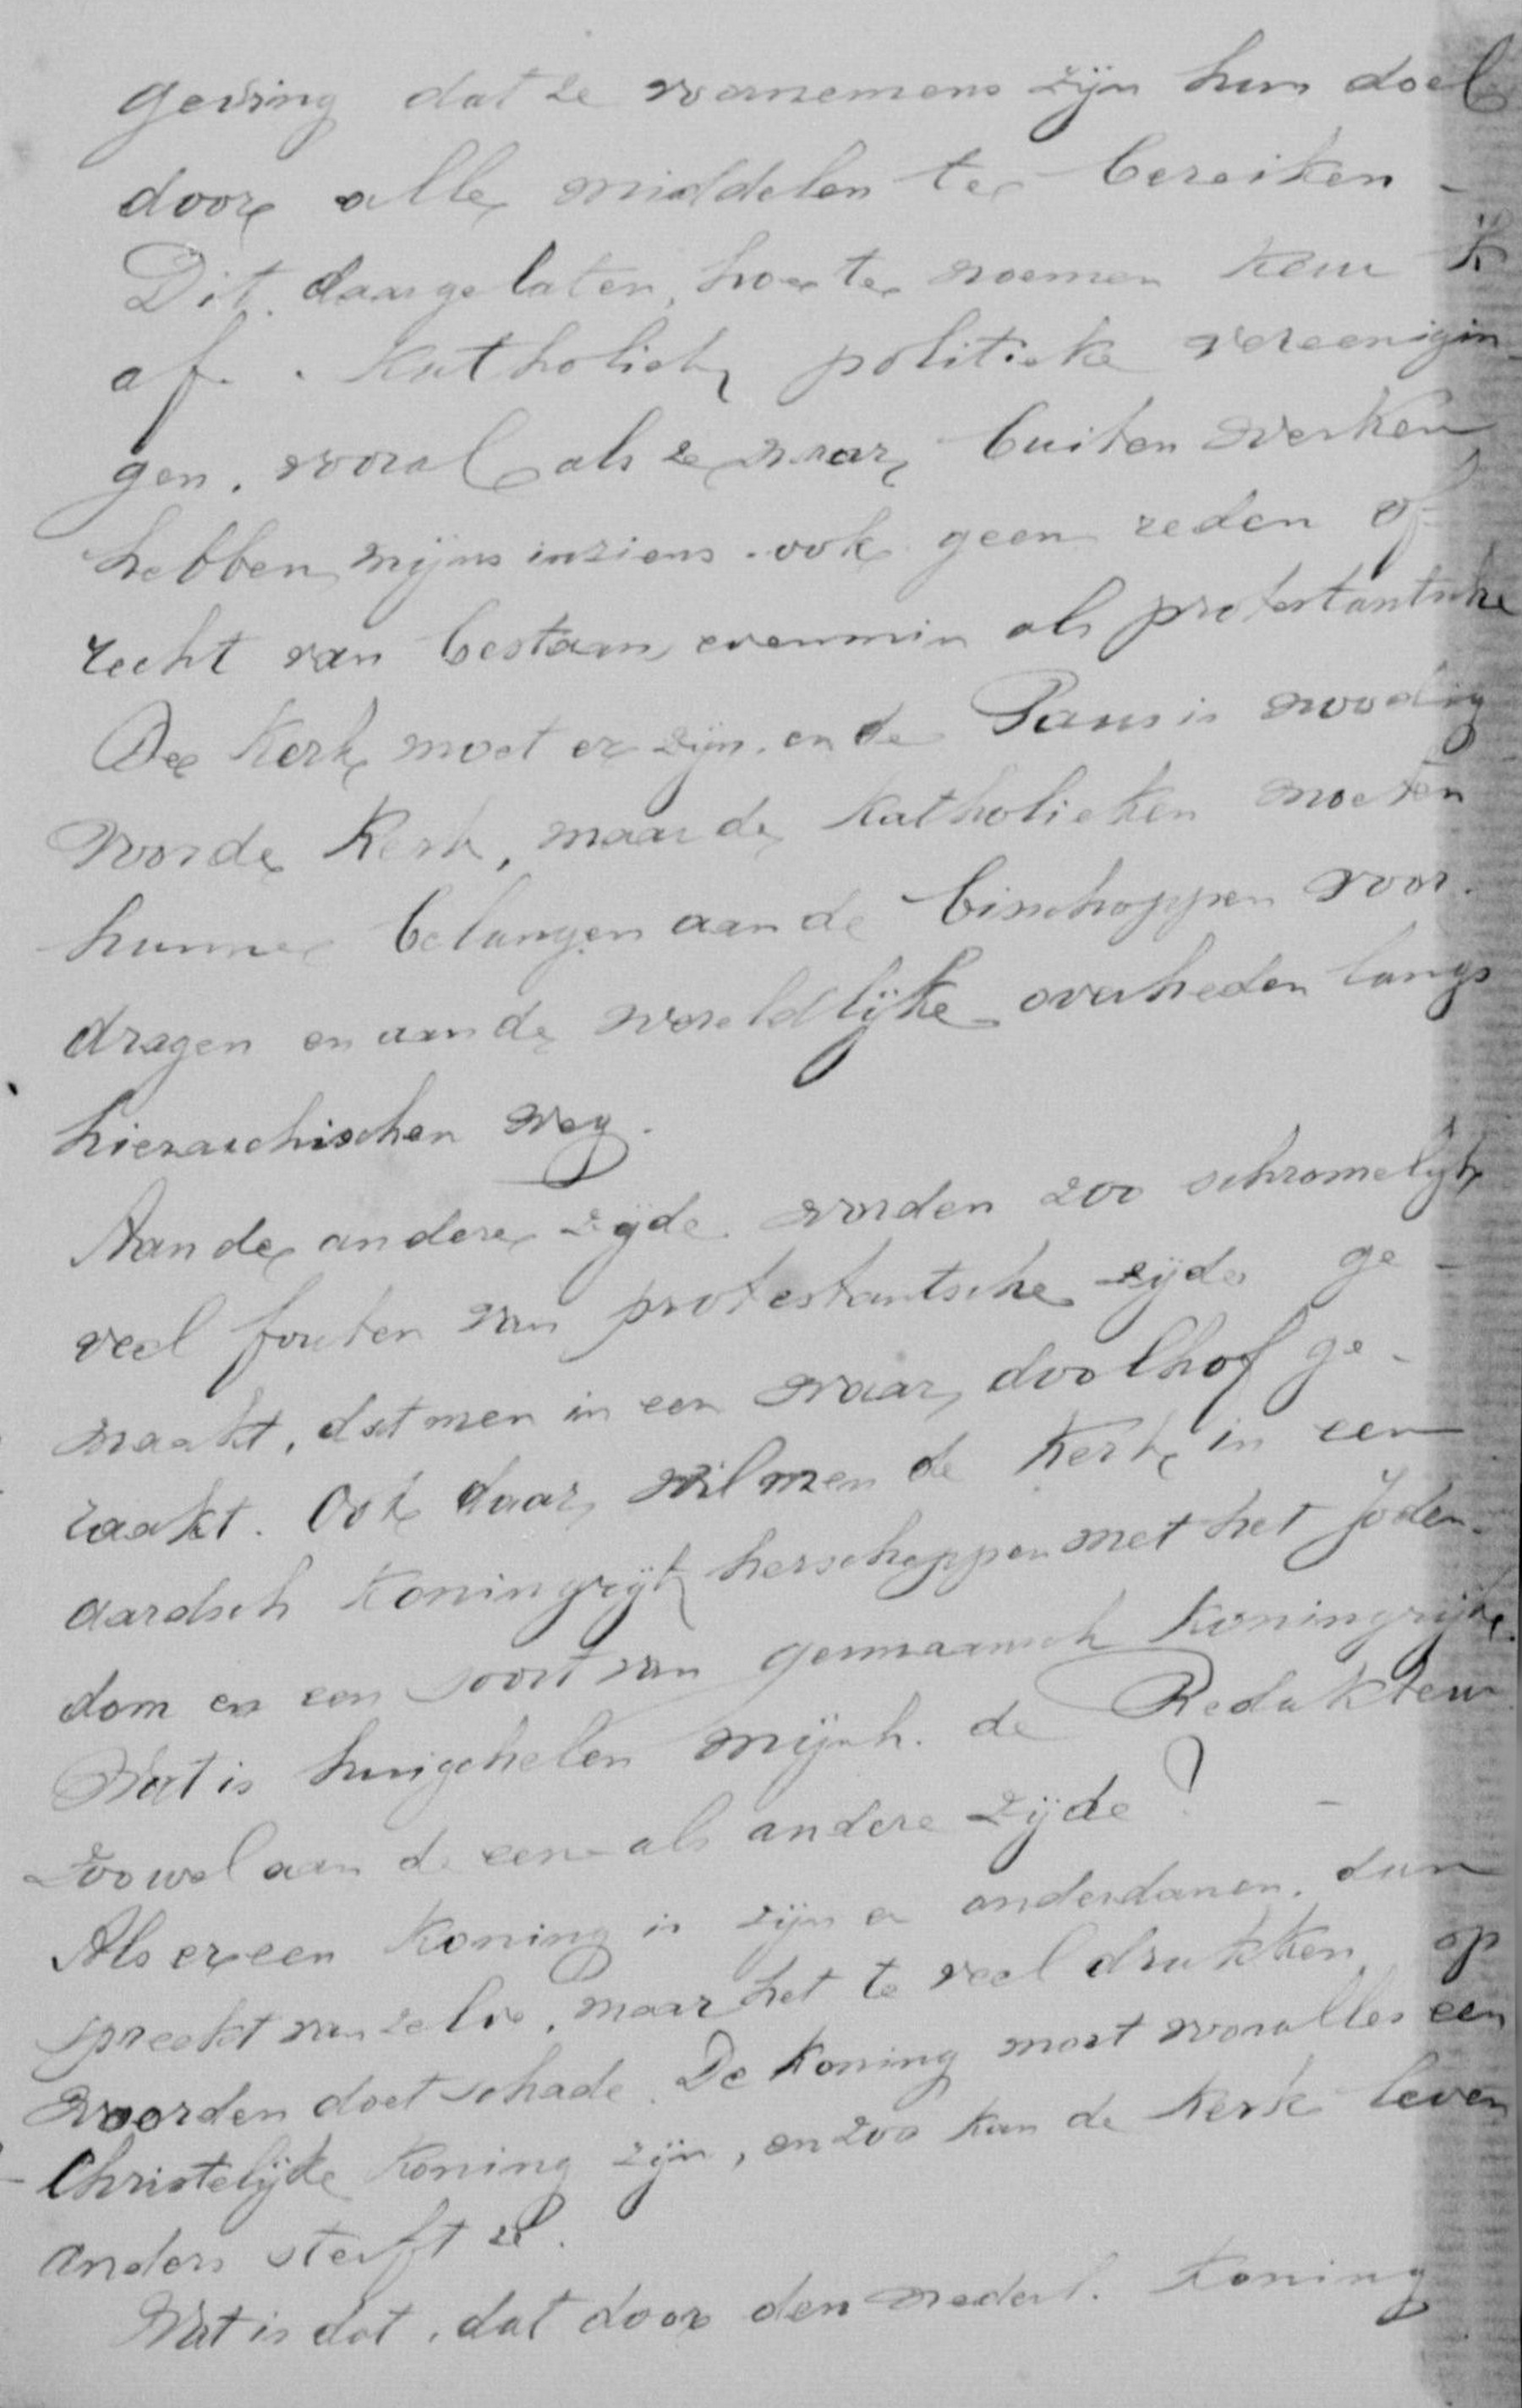 geving dat ze voornemens zijn hun doel
door alle middelen te bereiken -
Dit daargelaten, hoe te noemen keur ik
af. Katholiek politieke vereenigin-
gen, vooral als ze naar buiten werken
hebben mijns inziens ook geen reden of
recht van bestaan evenmin als protestantsche
De Kerk moet er zijn, en de Paus is noodig
voor de Kerk, maar de Katholieken moeten
hunne belangen aan de bisschoppen voor-
dragen en aan de wereldlijke overheden langs
hierarchischen weg.
Aan de andere zijde worden zoo schromelijk
veel fouten van protestantsche zijde ge-
maakt, dat men in een waar doolhof ge-
raakt. Ook daar wil men de Kerk in een
aardsch Koningrijk herscheppen met het Joden-
dom en een soort van germaansch Koningrijk.
Wat is huigchelen mijnh. de Redakteur
zoowel aan de eene als andere zijde? -
Als er een Koning is zijn er onderdanen, dan
spreekt van zelve, maar het te veel drukken op
woorden doet schade. De Koning moet vooralles een
Christelijke Koning zijn, en zoo kan de Kerk leven
anders sterft ze.
Wat is dat, dat door den nederl. Koning